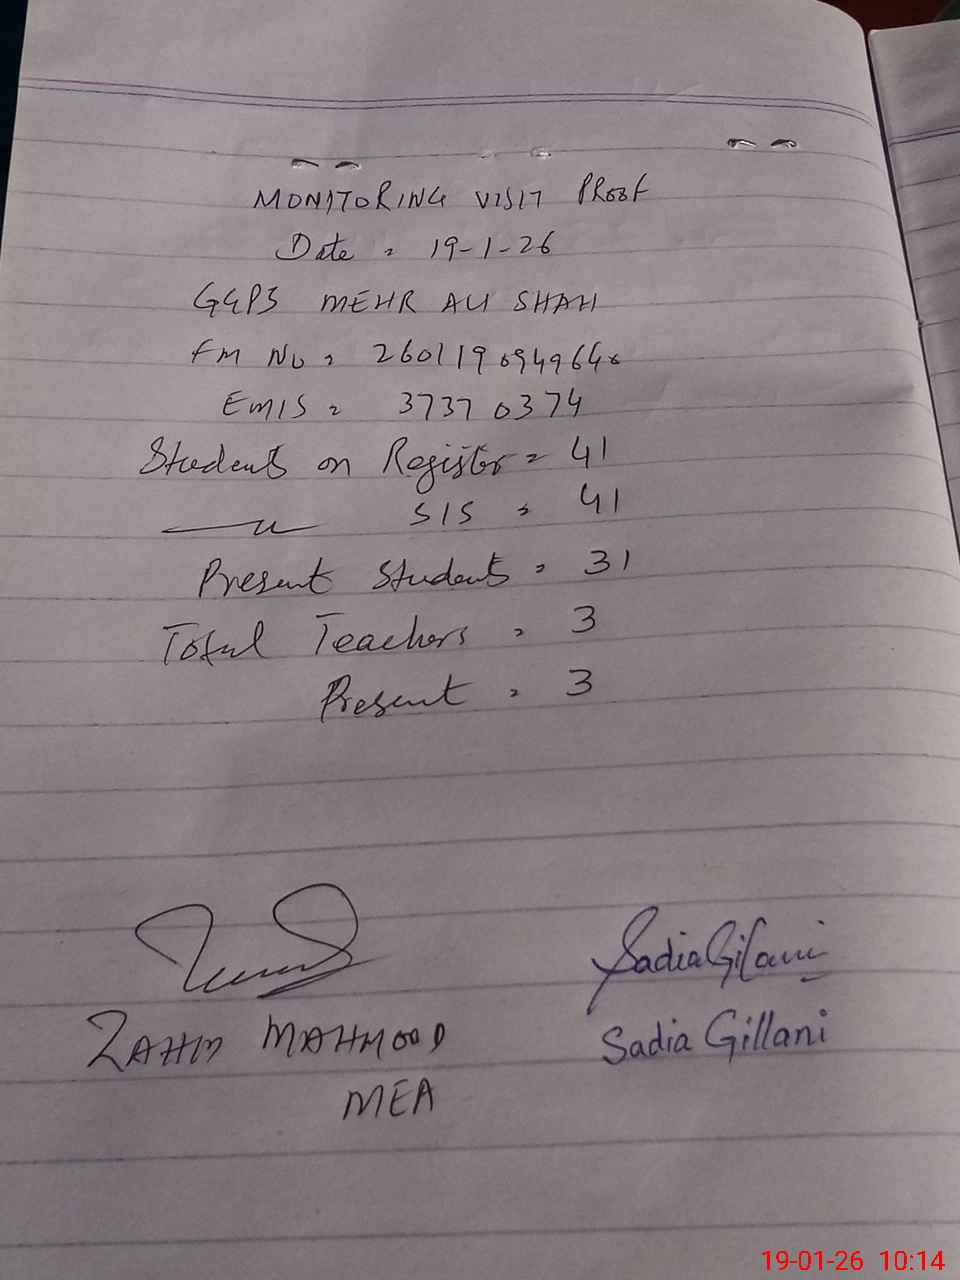 MONITORING VISIT PROOF
Date = 19-1-26
GGPS MEHR ALI SHAH
FM No = 2601190949646
EMIS = 37370374
Students on Register = 41
—〃— SIS = 41
Present Students = 31
Total Teachers = 3
Present = 3
Sadia Gilani
ZAHID MAHMOOD
Sadia Gillani
MEA
19-01-26 10:14